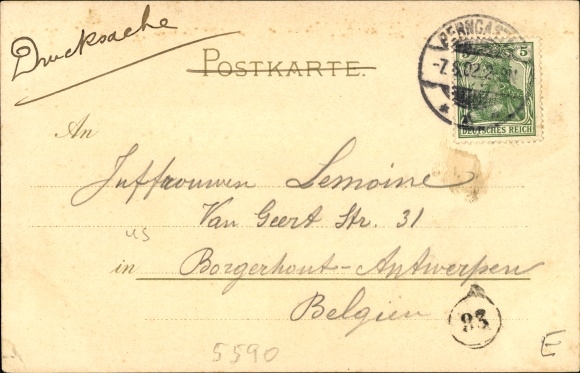 Drucksache
POSTKARTE.
BERNCASTEL
5
DEUTSCHES REICH
An
Juffrouwen Lemoine
Van Geert Str. 31
us
in Borgerhout-Antwerpen
Belgien
93
5590
E